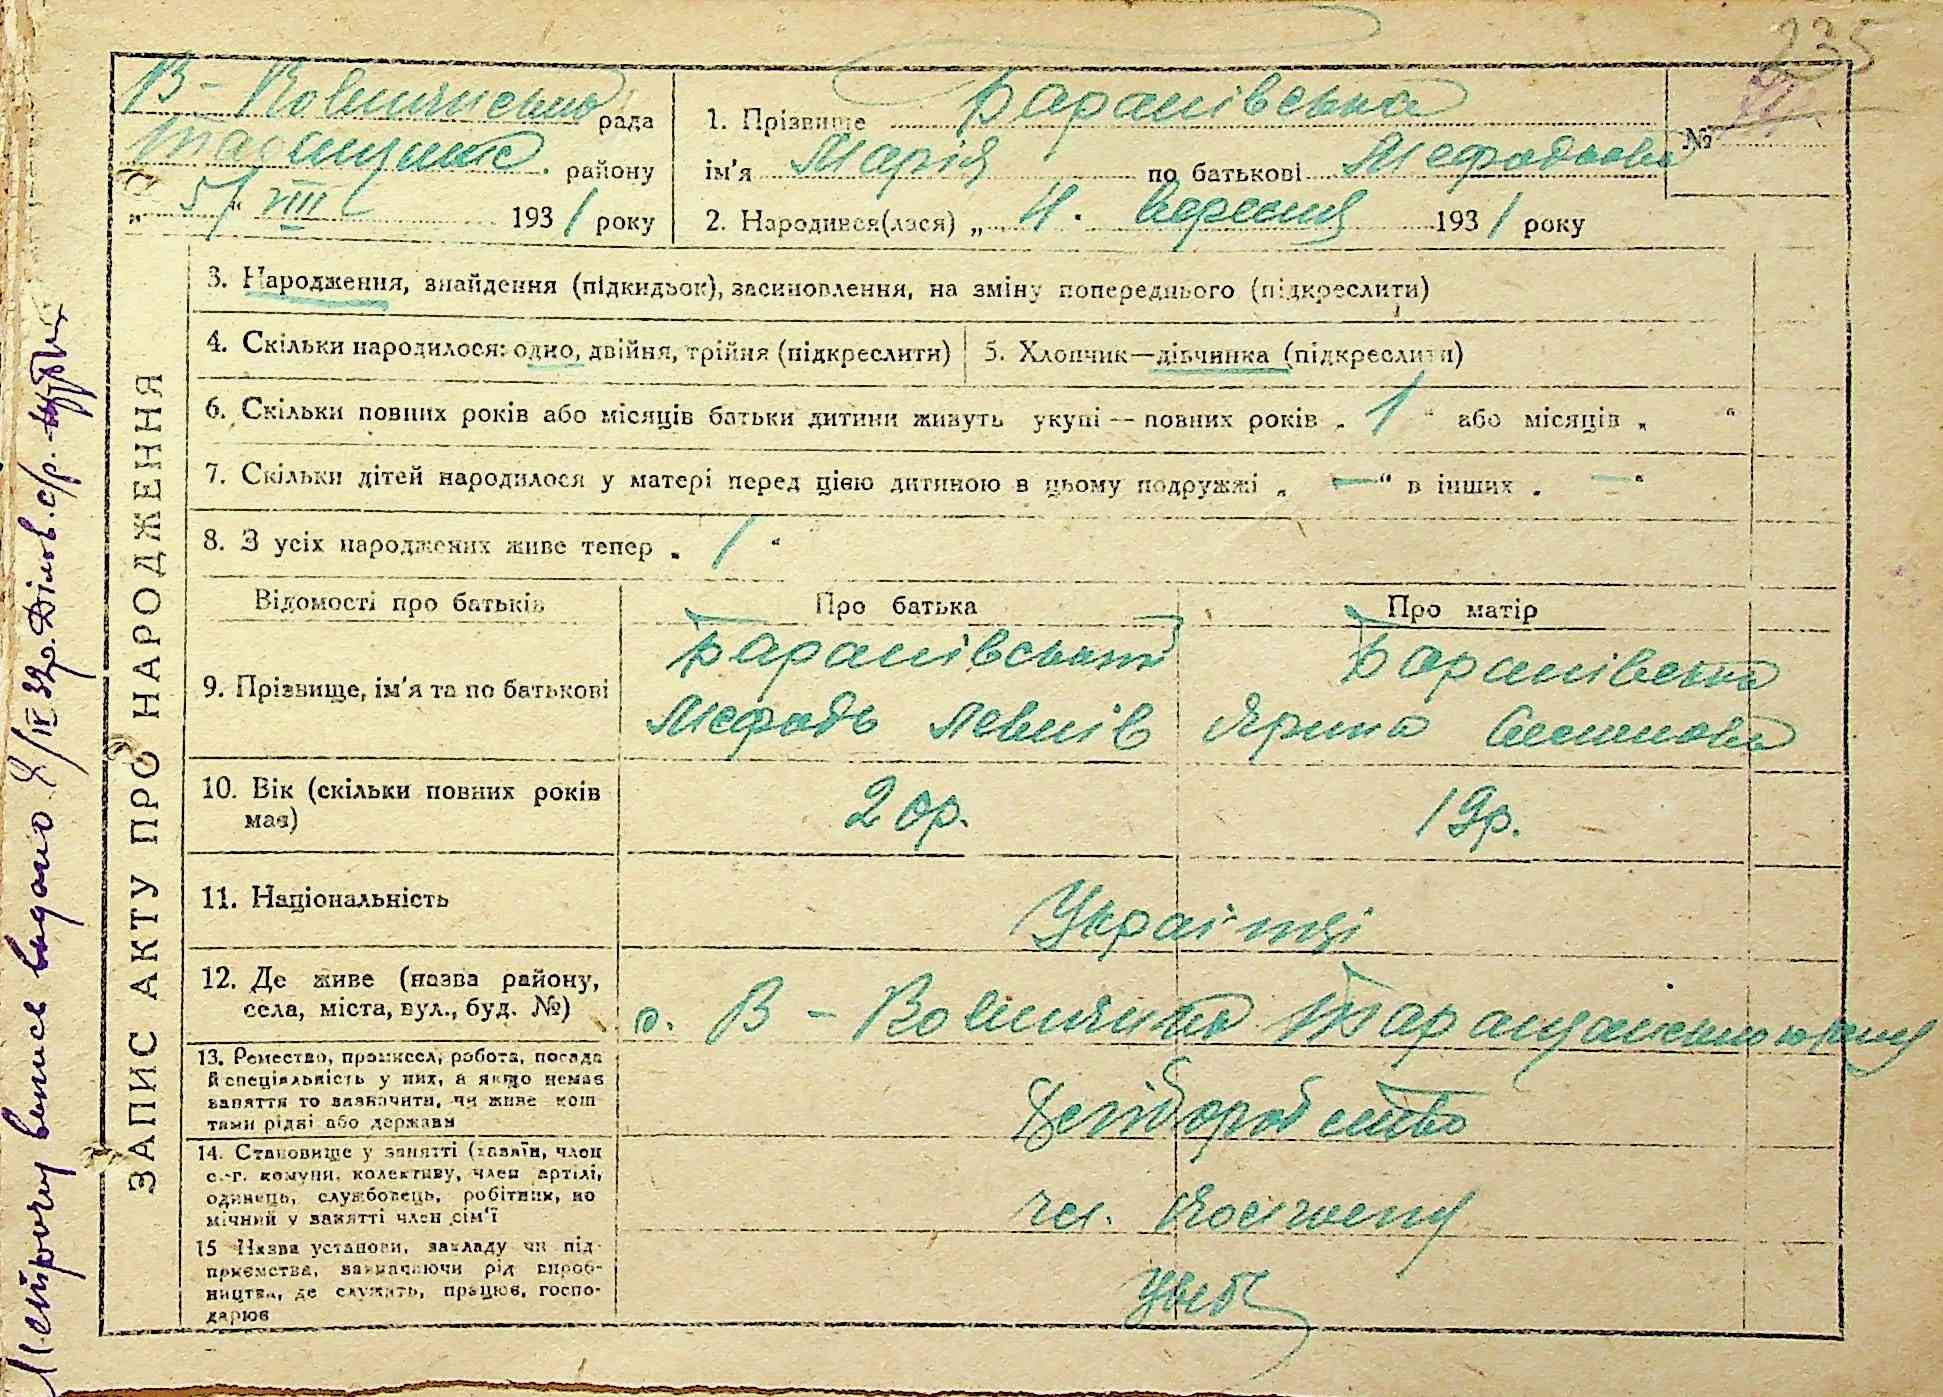 235
В - Вовнянська рада
Таращанс. району
„ 5/ “ VIII 1931 року
1. Прізвище Баранівська
ім'я Марія по батькові Мефодьова
№
2. Народився(лася) „ 4. вересня 1931 року
ЗАПИС АКТУ ПРО НАРОДЖЕННЯ
3. Народження, знайдення (підкидьок), засиновлення, на зміну попереднього (підкреслити)
4. Скільки народилося: одно, двійня, трійня (підкреслити)
5. Хлопчик—дівчинка (підкреслити)
6. Скільки повних років або місяців батьки дитини живуть укупі — повних років „ 1 “ або місяців „ “
7. Скільки дітей народилося у матері перед цією дитиною в цьому подружжі „ — “ в інших „ — “
8. З усіх народжених живе тепер „ 1 “
Відомості про батьків
Про батька
Про матір
9. Прізвище, ім'я та по батькові
Баранівський
Мефодь
Баранівська
Ярина
10. Вік (скільки повних років
має)
20р.
19р.
11. Національність
Українці
12. Де живе (назва району,
села, міста, вул., буд. №)
с. В - Таращанського району
13. Ремество, промисел, робота, посада
й спеціяльність у них, а якщо немає
заняття то зазначити, чи живе кош-
тами рідні або держави
хліборобство
14. Становище у занятті (хазяїн, член
с.-г. комуни, колективу, член артілі,
одинець, службовець, робітник, по
мічний у занятті член сім'ї
чл. колгоспу
15 Назва установи, закладу чи під-
приємства, зазначаючи рід вироб-
ництва, де служить, працює, госпо-
дарює
Метричну випись видано 8/IV 32р. с/р.